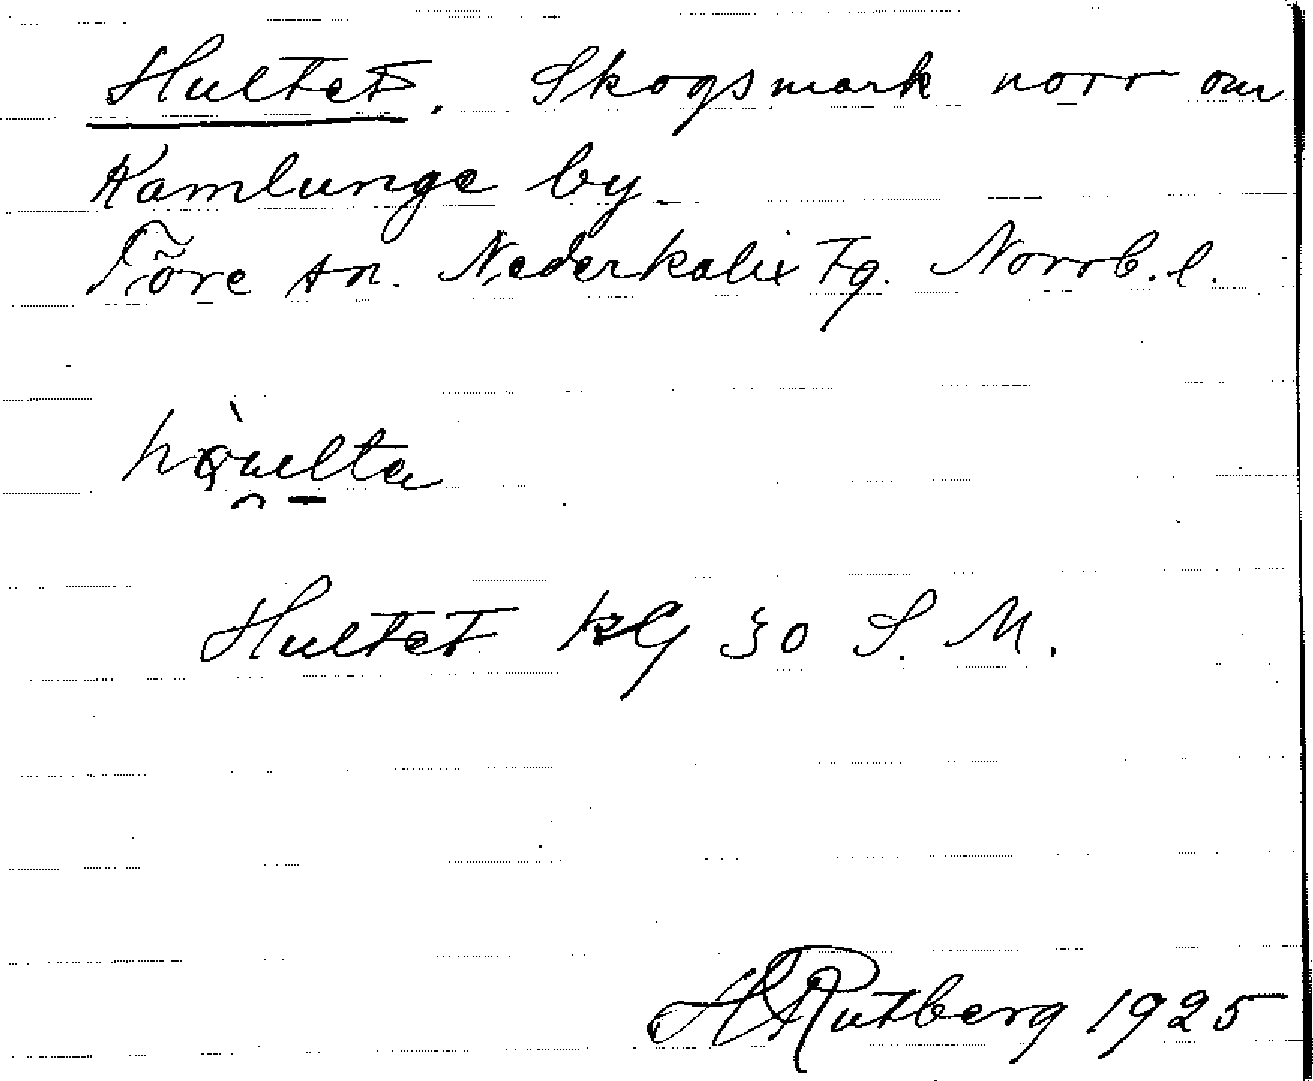 Hultet. Skogsmark norr om
Kamlunge by
Töre sn. Nederkalix Tg. Norrb. l.
Hultet kG 30 S. M.
H Rutberg 1925